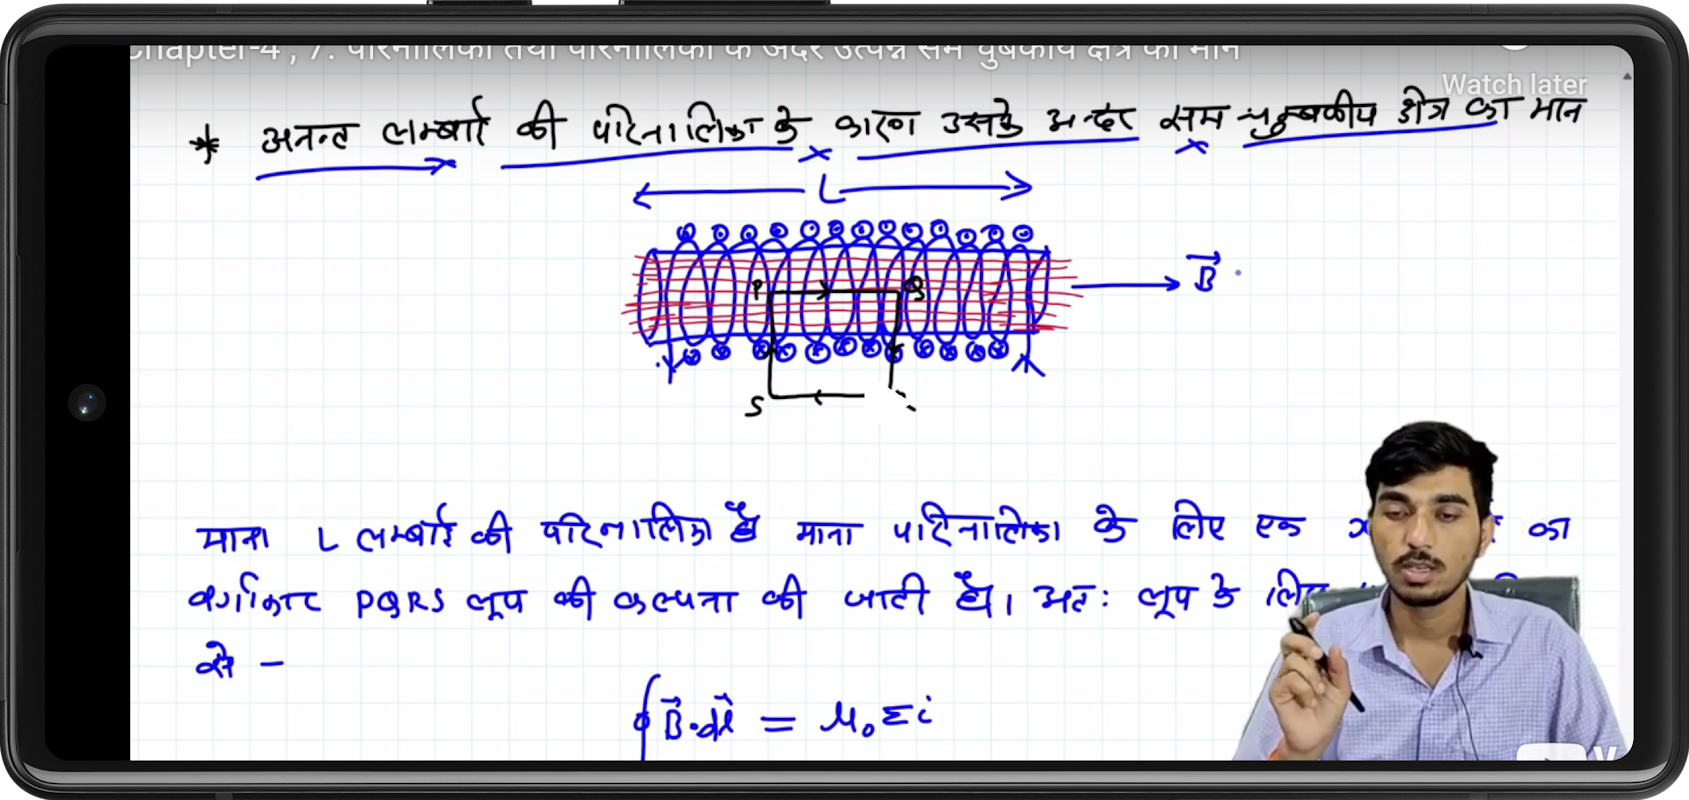 Chapter-4 , 7. परिनालिका तथा परिनालिका के अंदर उत्पन्न सम चुंबकीय क्षेत्र का मान
Watch later
* अनन्त लम्बाई की परिनालिका के कारण उसके अन्दर सम चुम्बकीय क्षेत्र का मान
L
B⃗
P Q
S
माना L लम्बाई की परिनालिका है माना परिनालिका के लिए एक का
वर्गाकार PQRS लूप की कल्पना की जाती है। अतः लूप के लिए
से –
∮ B⃗·dl⃗ = μ₀ Σi